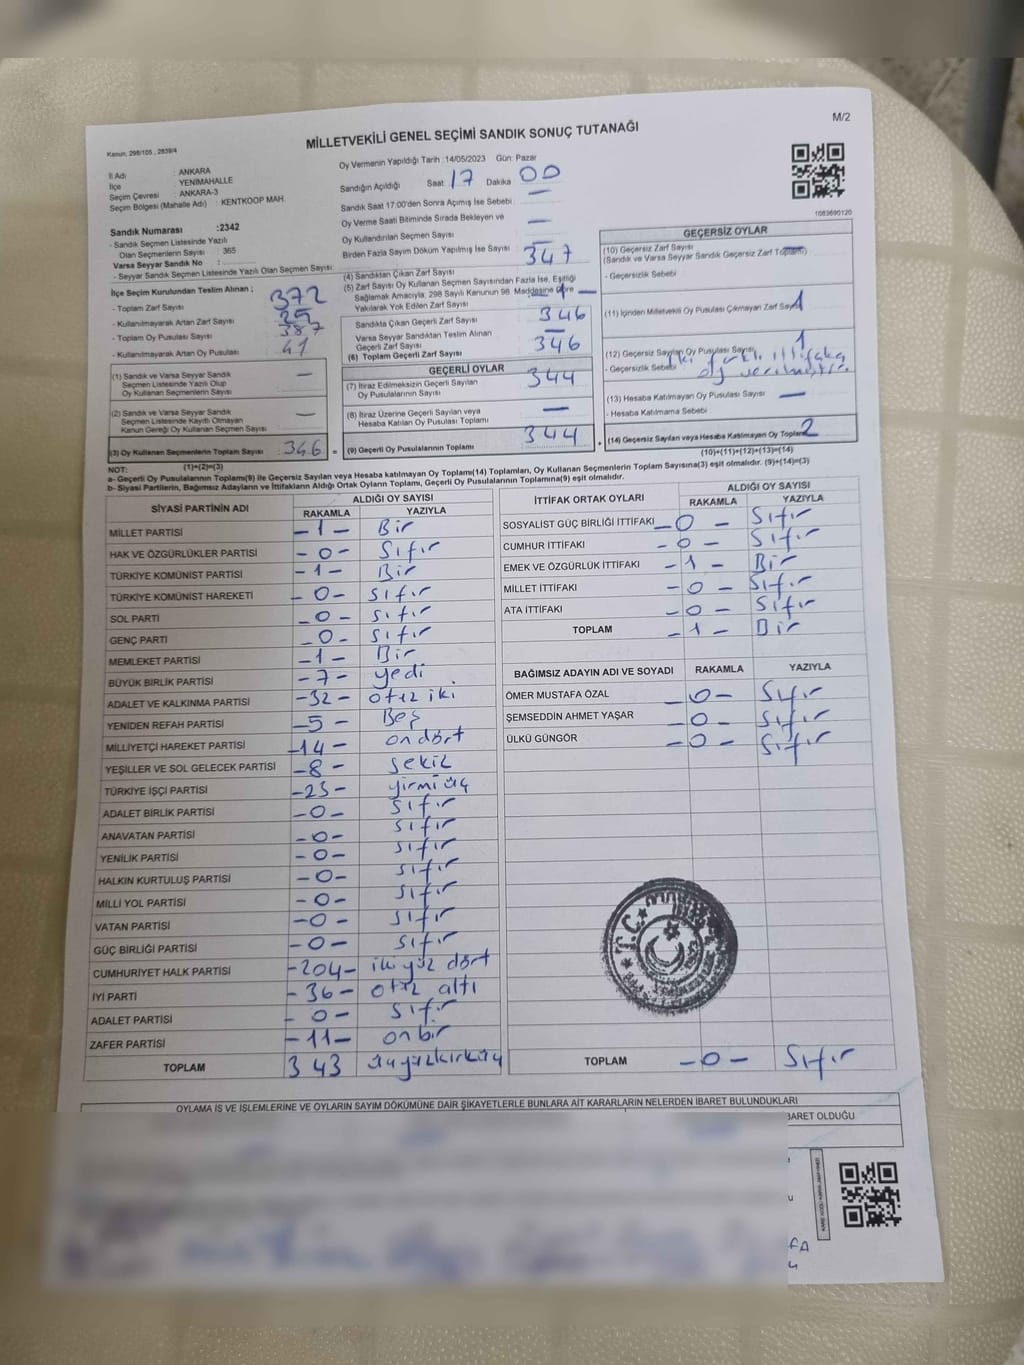 M/2
MİLLETVEKİLİ GENEL SEÇİMİ SANDIK SONUÇ TUTANAĞI
Kanun, 298/105 , 2839/4
İl Adı : ANKARA
İlçe : YENİMAHALLE
Seçim Çevresi : ANKARA-3
Seçim Bölgesi (Mahalle Adı) : KENTKOOP MAH.
Sandık Numarası :2342
- Sandık Seçmen Listesinde Yazılı
Olan Seçmenlerin Sayısı : 365
Varsa Seyyar Sandık No :
- Seyyar Sandık Seçmen Listesinde Yazılı Olan Seçmen Sayısı:
Oy Vermenin Yapıldığı Tarih :14/05/2023 Gün: Pazar
Sandığın Açıldığı Saat 17 Dakika 00
Sandık Saat 17:00'den Sonra Açımış İse Sebebi —
Oy Verme Saati Bitiminde Sırada Bekleyen ve
Oy Kullandırılan Seçmen Sayısı —
Birden Fazla Sayım Döküm Yapılmış İse Sayısı —
1083690120
İlçe Seçim Kurulundan Teslim Alınan ;
- Toplam Zarf Sayısı 372
- Kullanılmayarak Artan Zarf Sayısı 25
- Toplam Oy Pusulası Sayısı 387
- Kullanılmayarak Artan Oy Pusulası 41
(1) Sandık ve Varsa Seyyar Sandık
Seçmen Listesinde Yazılı Olup
Oy Kullanan Seçmenlerin Sayısı —
(2) Sandık ve Varsa Seyyar Sandık
Seçmen Listesinde Kayıtlı Olmayan
Kanun Gereği Oy Kullanan Seçmen Sayısı —
(3) Oy Kullanan Seçmenlerin Toplam Sayısı 346
(1)+(2)=(3)
(4) Sandıktan Çıkan Zarf Sayısı 347
(5) Zarf Sayısı Oy Kullanan Seçmen Sayısından Fazla İse, Eşitliği
Sağlamak Amacıyla, 298 Sayılı Kanunun 98. Maddesine Göre
Yakılarak Yok Edilen Zarf Sayısı — 1 —
Sandıkta Çıkan Geçerli Zarf Sayısı 346
Varsa Seyyar Sandıktan Teslim Alınan
Geçerli Zarf Sayısı —
(6) Toplam Geçerli Zarf Sayısı 346
GEÇERLİ OYLAR
(7) İtiraz Edilmeksizin Geçerli Sayılan
Oy Pusulalarının Sayısı 344
(8) İtiraz Üzerine Geçerli Sayılan veya
Hesaba Katılan Oy Pusulaları Toplamı —
= (9) Geçerli Oy Pusulalarının Toplamı 344
GEÇERSİZ OYLAR
(10) Geçersiz Zarf Sayısı —
(Sandık ve Varsa Seyyar Sandık Geçersiz Zarf Toplamı)
- Geçersizlik Sebebi
(11) İçinden Milletvekili Oy Pusulası Çıkmayan Zarf Sayısı 1
(12) Geçersiz Sayılan Oy Pusulası Sayısı 1
- Geçersizlik Sebebi iki farklı ittifaka
oy verilmiştir.
(13) Hesaba Katılmayan Oy Pusulası Sayısı —
- Hesaba Katılmama Sebebi
+ (14) Geçersiz Sayılan veya Hesaba Katılmayan Oy Toplamı 2
(10)+(11)+(12)+(13)=(14)
NOT:
a- Geçerli Oy Pusulalarının Toplamı(9) ile Geçersiz Sayılan veya Hesaba katılmayan Oy Toplamı(14) Toplamları, Oy Kullanan Seçmenlerin Toplam Sayısına(3) eşit olmalıdır. (9)+(14)=(3)
b- Siyasi Partilerin, Bağımsız Adayların ve İttifakların Aldığı Ortak Oyların Toplamı, Geçerli Oy Pusulalarının Toplamına(9) eşit olmalıdır.
SİYASİ PARTİNİN ADI ALDIĞI OY SAYISI
RAKAMLA YAZIYLA
MİLLET PARTİSİ -1- Bir
HAK VE ÖZGÜRLÜKLER PARTİSİ -0- Sıfır
TÜRKİYE KOMÜNİST PARTİSİ -1- Bir
TÜRKİYE KOMÜNİST HAREKETİ -0- Sıfır
SOL PARTİ -0- Sıfır
GENÇ PARTİ -0- Sıfır
MEMLEKET PARTİSİ -1- Bir
BÜYÜK BİRLİK PARTİSİ -7- yedi
ADALET VE KALKINMA PARTİSİ -32- otuz iki
YENİDEN REFAH PARTİSİ -5- Beş
MİLLİYETÇİ HAREKET PARTİSİ -14- ondört
YEŞİLLER VE SOL GELECEK PARTİSİ -8- sekiz
TÜRKİYE İŞÇİ PARTİSİ -23- yirmi üç
ADALET BİRLİK PARTİSİ -0- sıfır
ANAVATAN PARTİSİ -0- sıfır
YENİLİK PARTİSİ -0- sıfır
HALKIN KURTULUŞ PARTİSİ -0- sıfır
MİLLİ YOL PARTİSİ -0- sıfır
VATAN PARTİSİ -0- sıfır
GÜÇ BİRLİĞİ PARTİSİ -0- sıfır
CUMHURİYET HALK PARTİSİ -204- iki yüz dört
İYİ PARTİ -36- otuz altı
ADALET PARTİSİ -0- sıfır
ZAFER PARTİSİ -11- onbir
TOPLAM 343 üçyüzkırküç
İTTİFAK ORTAK OYLARI ALDIĞI OY SAYISI
RAKAMLA YAZIYLA
SOSYALİST GÜÇ BİRLİĞİ İTTİFAKI -0- Sıfır
CUMHUR İTTİFAKI -0- Sıfır
EMEK VE ÖZGÜRLÜK İTTİFAKI -1- Bir
MİLLET İTTİFAKI -0- Sıfır
ATA İTTİFAKI -0- Sıfır
TOPLAM -1- Bir
BAĞIMSIZ ADAYIN ADI VE SOYADI RAKAMLA YAZIYLA
ÖMER MUSTAFA ÖZAL -0- Sıfır
ŞEMSEDDİN AHMET YAŞAR -0- Sıfır
ÜLKÜ GÜNGÖR -0- Sıfır
T.C.
TOPLAM -0- Sıfır
OYLAMA İŞ VE İŞLEMLERİNE VE OYLARIN SAYIM DÖKÜMÜNE DAİR ŞİKAYETLERLE BUNLARA AİT KARARLARIN NELERDEN İBARET BULUNDUKLARI
BARET OLDUĞU